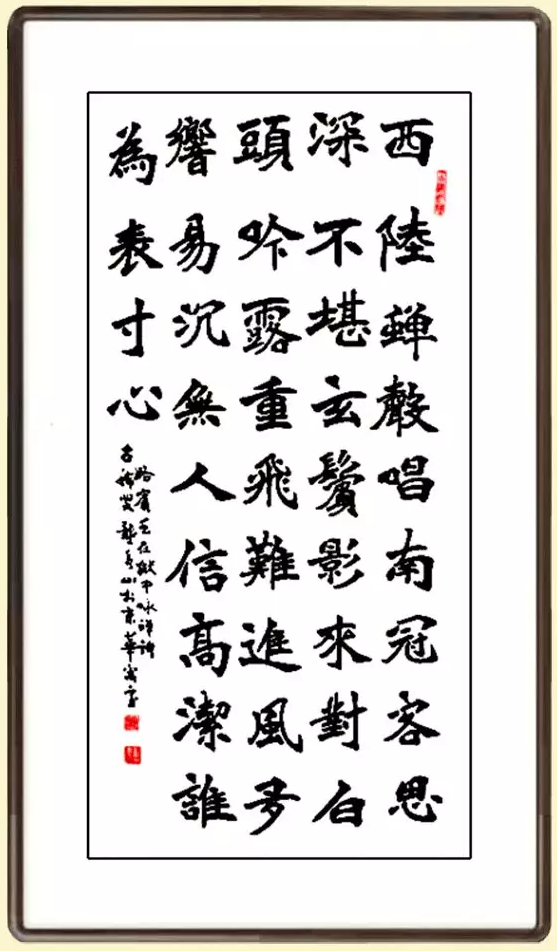 西陸蟬聲唱南冠客思
深不堪玄鬢影來對白
頭吟露重飛難進風多
響易沉無人信高潔誰
為表寸心
駱賓王在獄中咏蟬詩
古稀叟龔山於京華